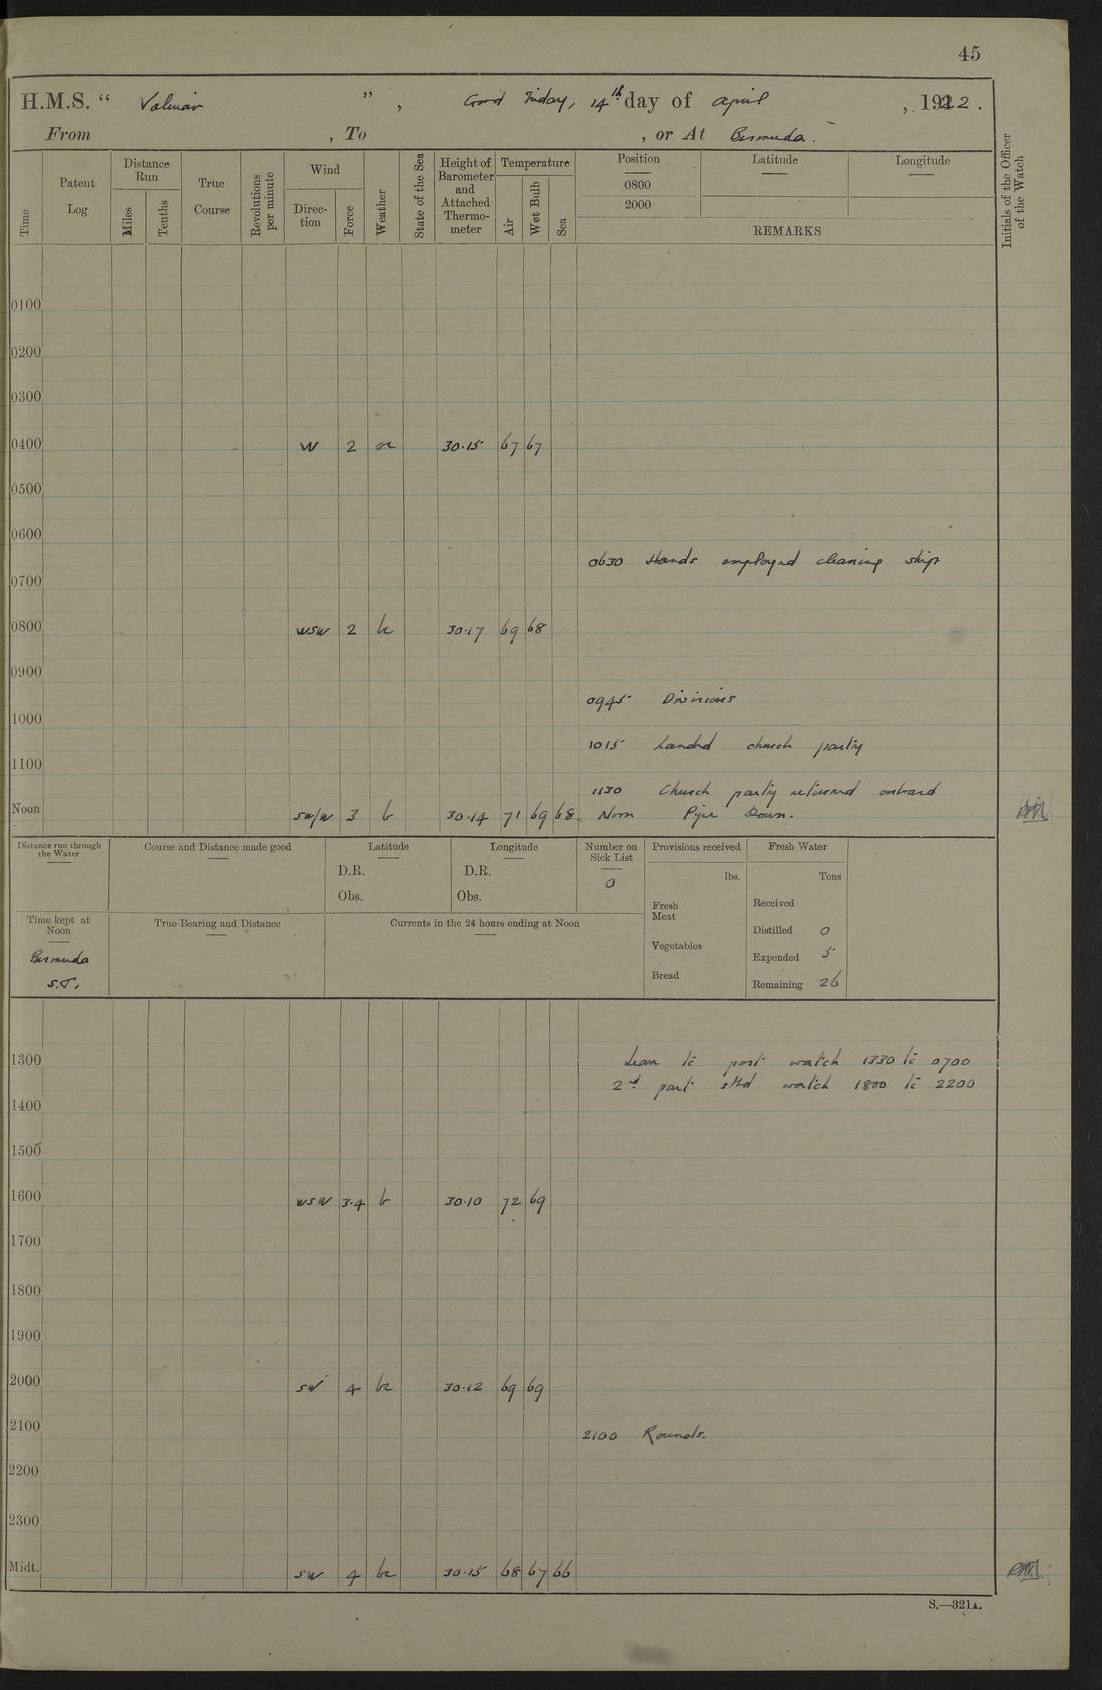 45
H.M.S. " Valerian " , Good Friday, 14th day of April , 1922 .
From , To , or At Bermuda .
Time
Patent Log
Distance Run
Miles
Tenths
True Course
Revolutions per minute
Wind
Direction
Force
Weather
State of the Sea
Height of Barometer and Attached Thermometer
Temperature
Air
Wet Bulb
Sea
Position
0800
2000
Latitude
Longitude
REMARKS
Initials of the Officer of the Watch
0100
0200
0300
0400 W 2 oc 30.15 67 67
0500
0600
0630 Hands employed cleaning ship
0700
0800 WSW 2 bc 30.17 69 68
0900
0945 Divisions
1000
1015 Landed church party
1100
1130 Church party returned onboard
Noon SW/W 3 b 30.14 71 69 68 Noon Pipe Down.
Distance run through the Water
Course and Distance made good
Latitude
D.R.
Obs.
Longitude
D.R.
Obs.
Number on Sick List
0
Provisions received
lbs.
Fresh Meat
Vegetables
Bread
Fresh Water
Tons
Received
Distilled 0
Expended 5
Remaining 26
Time kept at Noon
Bermuda
S.T.
True Bearing and Distance
Currents in the 24 hours ending at Noon
1300 Leave to port watch 1330 to 0700
2nd part stbd watch 1800 to 2200
1400
1500
1600 WSW 3.4 b 30.10 72 69
1700
1800
1900
2000 SW 4 bc 30.12 69 69
2100 2100 Rounds.
2200
2300
Midt. SW 4 bc 30.15 68 67 66
S.—321A.